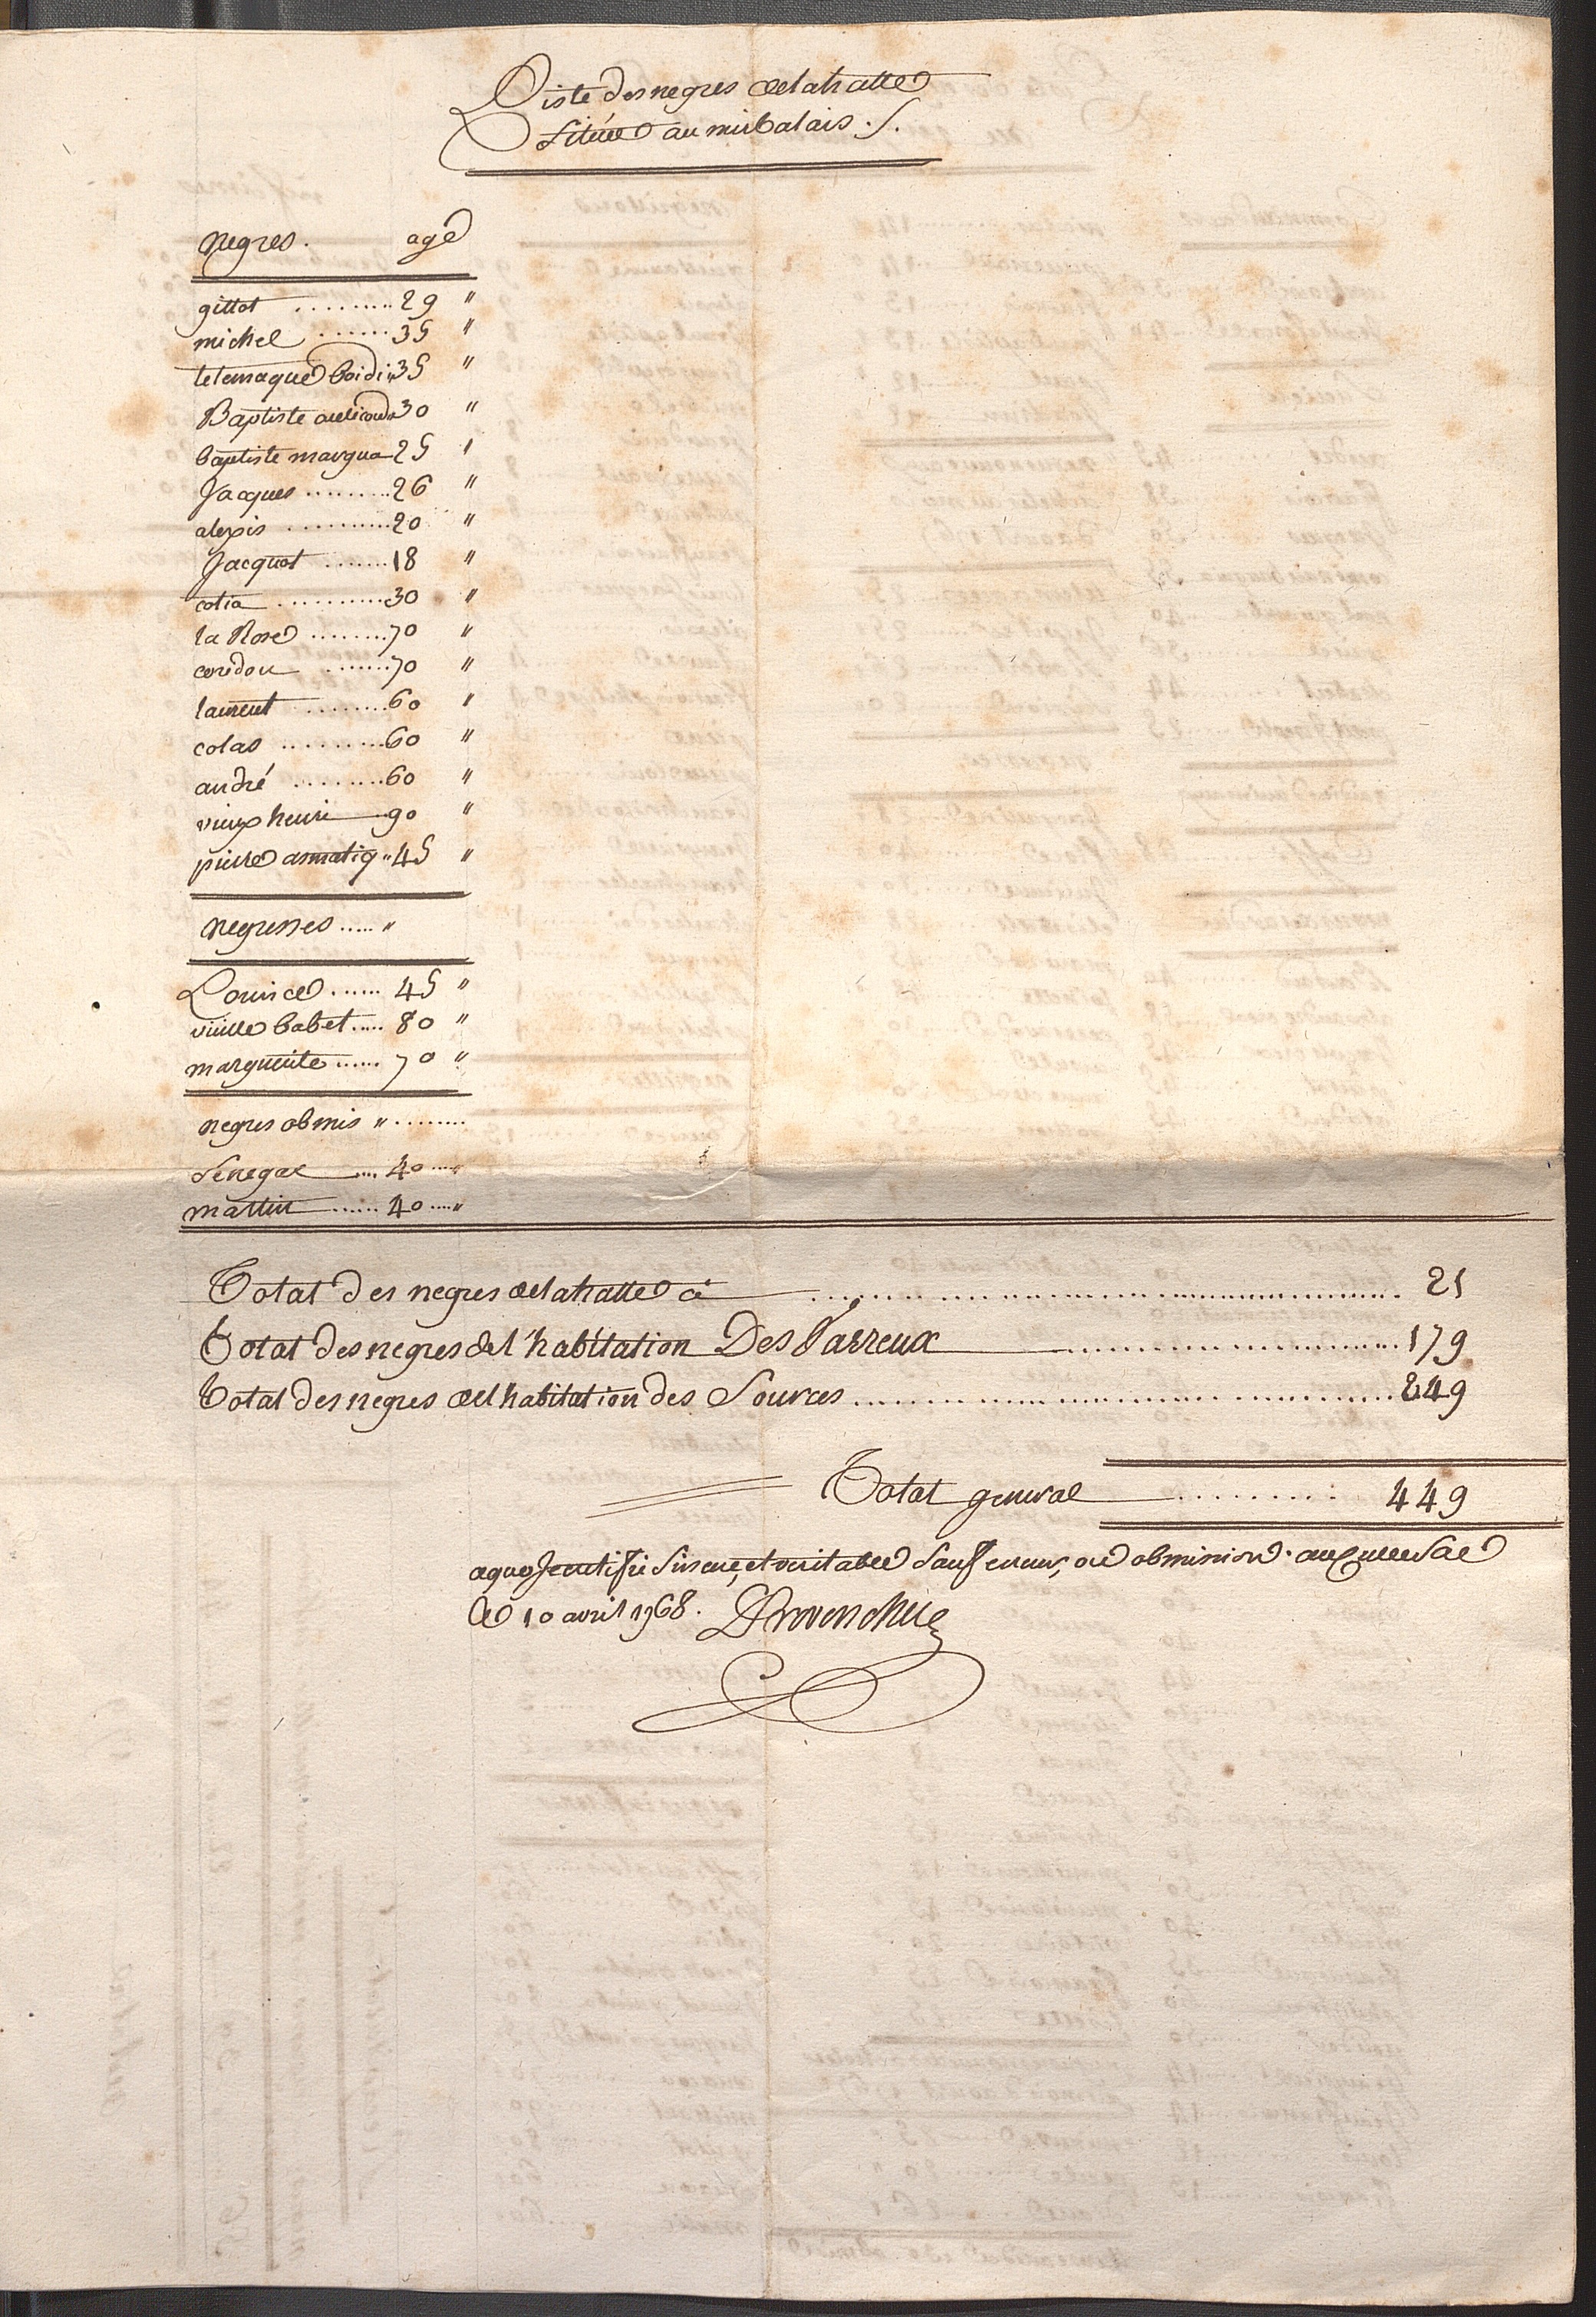 Liste des negres delahatte
Situéé au mirbalais ./.
negres. age
gillot .......... 29 "
michel ....... 35 "
telemaque boidin 35 "
Baptiste 30 "
baptiste margua 25 "
Jacques ......... 26 "
alexis ........... 20 "
Jacquot ....... 18 "
cotia ........... 30 "
la Rose ........ 70 "
coridon ....... 70 "
laurent ......... 60 "
colas .......... 60 "
andré ......... 60 "
vieux henri 90 "
pierre asmatiq " 45 "
negresses ..... "
Louise ...... 45 "
vieille babet .... 80 "
marguerite ...... 70 "
negres obmis " ........
Senegal .... 40 .... "
martin ...... 40 .... "
Total des negres delahatte ci ........ 21
Total des negres del'habitation Des Varreux ........ 179
Total des negres delhabitation des Sources ........ 249
Total general ......... 449
aque Jecertifie sincere, et veritable Sauf erreur, ou obmission. au Culdesac
Le 10 avril 1768.